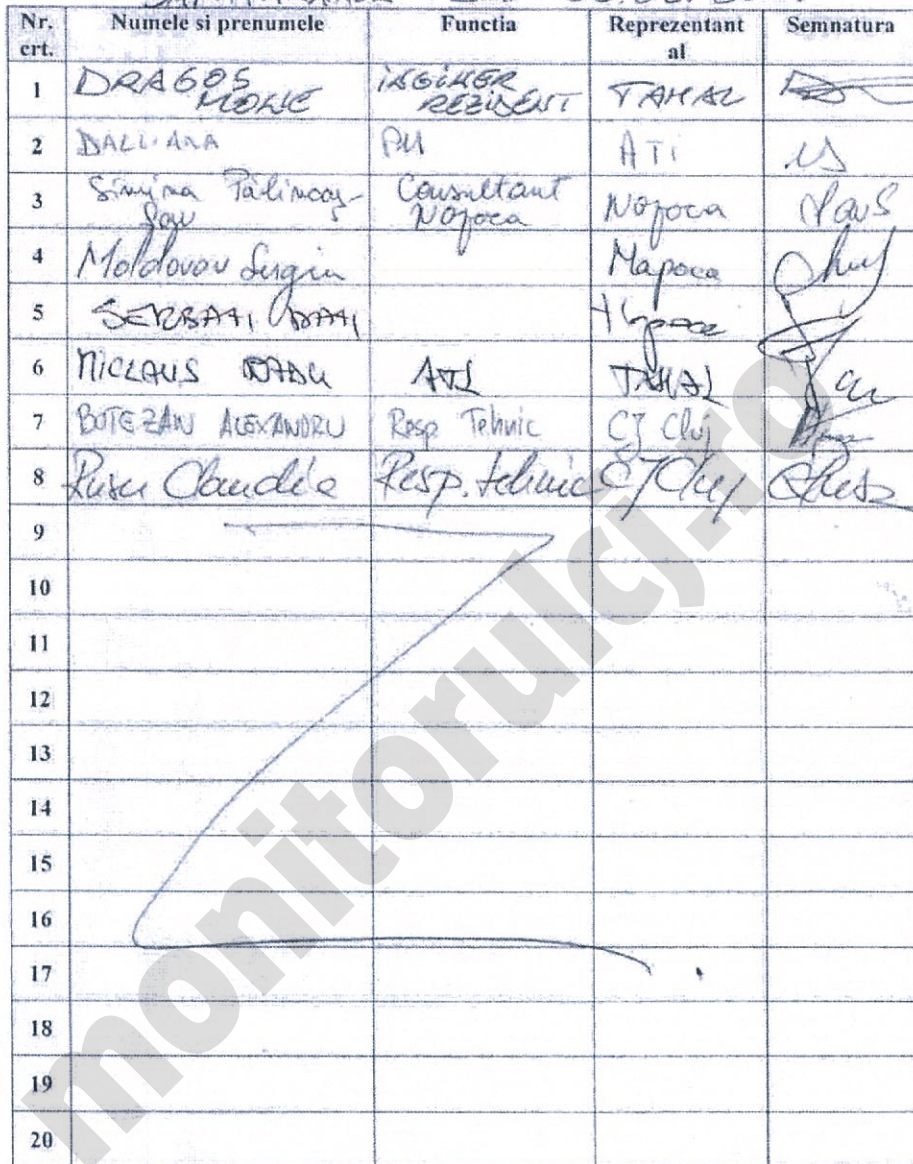 Nr. crt. Numele si prenumele Functia Reprezentant al Semnatura
1 DRAGOS INGINER REZIDENT TAHAL
2 PM ATI
3 Simina Consultant Nopoca Nopoca
4 Moldovan Mapoca
5 SERBAN DAN
6 NICLAUS RADU ATI TAHAL
7 BOTEZAN ALEXANDRU Resp Tehnic CJ Cluj
8 Rusu Claudia Resp. tehnic CJ Cluj
9
10
11
12
13
14
15
16
17
18
19
20
monitorulcj.ro